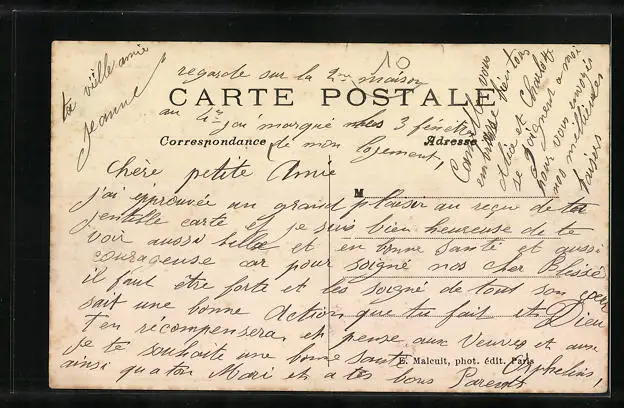 10
ta vieille amie
Jeanne
regarde sur la 2me maison
CARTE POSTALE
au 4me j'ai marqué mes 3 fenêtres
Correspondance
Adresse
de mon logement,
Chère petite Amie
M
j'ai éprouvée un grand plaisir au reçu de ta
jentille carte et je suis bien heureuse de te
voir aussi belle et en bonne santé et aussi
courageuse car pour soigné nos cher Blessés
il faut être forte et les soigné de tout son cœur
sait une bonne Action que tu fait et Dieu
t'en récompensera, et pense aux Veuves et aux
Orphelins,
je te souhaite une bonne santé
E. Malcuit, phot. édit. Paris
ainsi qu'a ton Mari et a tes bons Parents
vous
Alice et Charlot
se joignent a moi
pour vous envoyés
nos meilleures
baisers